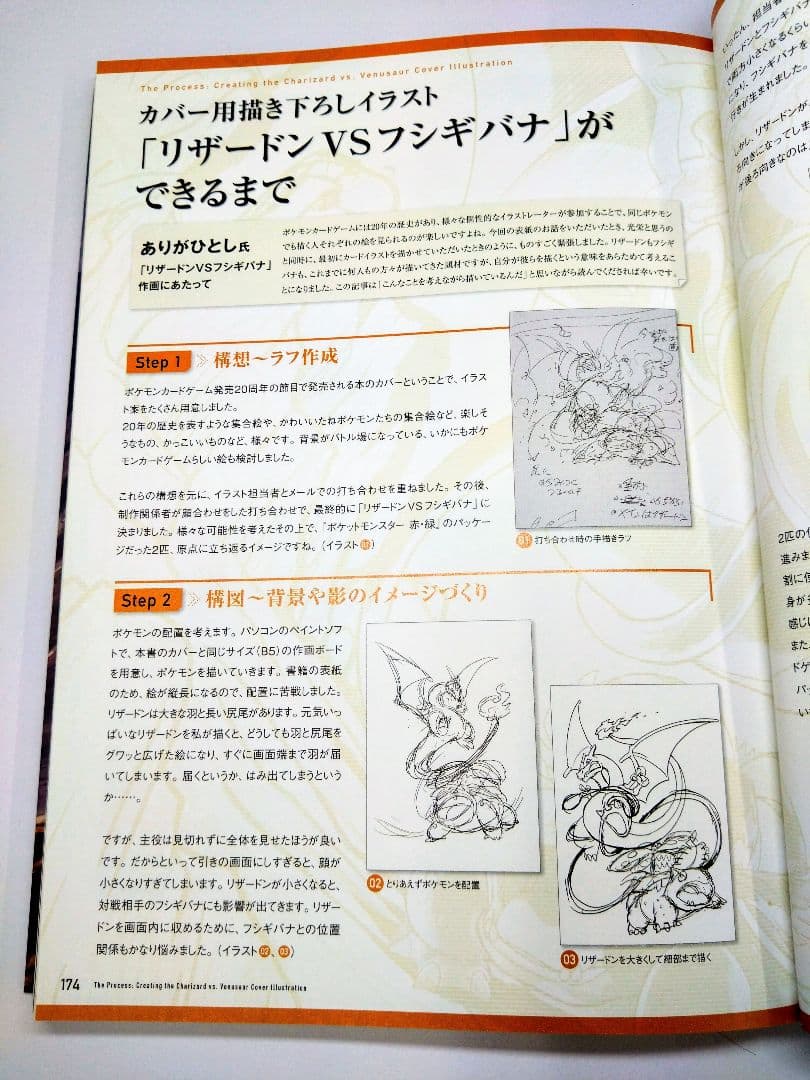 The Process: Creating the Charizard vs. Venusaur Cover Illustration
カバー用描き下ろしイラスト
「リザードンVSフシギバナ」が
できるまで
ありがひとし氏
「リザードンVSフシギバナ」
作画にあたって
ポケモンカードゲームには20年の歴史があり、様々な個性的なイラストレーターが参加することで、同じポケモン
でも描く人それぞれの絵を見られるのが楽しいですよね。今回の表紙のお話をいただいたとき、光栄と思うの
と同時に、最初にカードイラストを描かせていただいたときのように、ものすごく緊張しました。リザードンもフシギ
バナも、これまでに何人もの方々が描いてきた題材ですが、自分が彼らを描くという意味をあらためて考えるこ
とになりました。この記事は「こんなことを考えながら描いているんだ」と思いながら読んでくだされば幸いです。
Step 1
構想〜ラフ作成
ポケモンカードゲーム発売20周年の節目で発売される本のカバーということで、イラス
ト案をたくさん用意しました。
20年の歴史を表すような集合絵や、かわいいたねポケモンたちの集合絵など、楽しそ
うなもの、かっこいいものなど、様々です。背景がバトル場になっている、いかにもポケ
モンカードゲームらしい絵も検討しました。
これらの構想を元に、イラスト担当者とメールでの打ち合わせを重ねました。その後、
制作関係者が顔合わせをした打ち合わせで、最終的に「リザードンVSフシギバナ」に
決まりました。様々な可能性を考えたその上で、『ポケットモンスター 赤・緑』のパッケー
ジだった2匹、原点に立ち返るイメージですね。（イラスト01）
01 打ち合わせ時の手描きラフ
Step 2
構図〜背景や影のイメージづくり
ポケモンの配置を考えます。パソコンのペイントソフ
トで、本書のカバーと同じサイズ（B5）の作画ボード
を用意し、ポケモンを描いていきます。書籍の表紙
のため、絵が縦長になるので、配置に苦戦しました。
リザードンは大きな羽と長い尻尾があります。元気いっ
ぱいなリザードンを私が描くと、どうしても羽と尻尾を
グワッと広げた絵になり、すぐに画面端まで羽が届
いてしまいます。届くというか、はみ出てしまうという
か……。
ですが、主役は見切れずに全体を見せたほうが良い
です。だからといって引きの画面にしすぎると、顔が
小さくなりすぎてしまいます。リザードンが小さくなると、
対戦相手のフシギバナにも影響が出てきます。リザー
ドンを画面内に収めるために、フシギバナとの位置
関係もかなり悩みました。（イラスト02、03）
02 とりあえずポケモンを配置
03 リザードンを大きくして細部まで描く
174 The Process: Creating the Charizard vs. Venusaur Cover Illustration